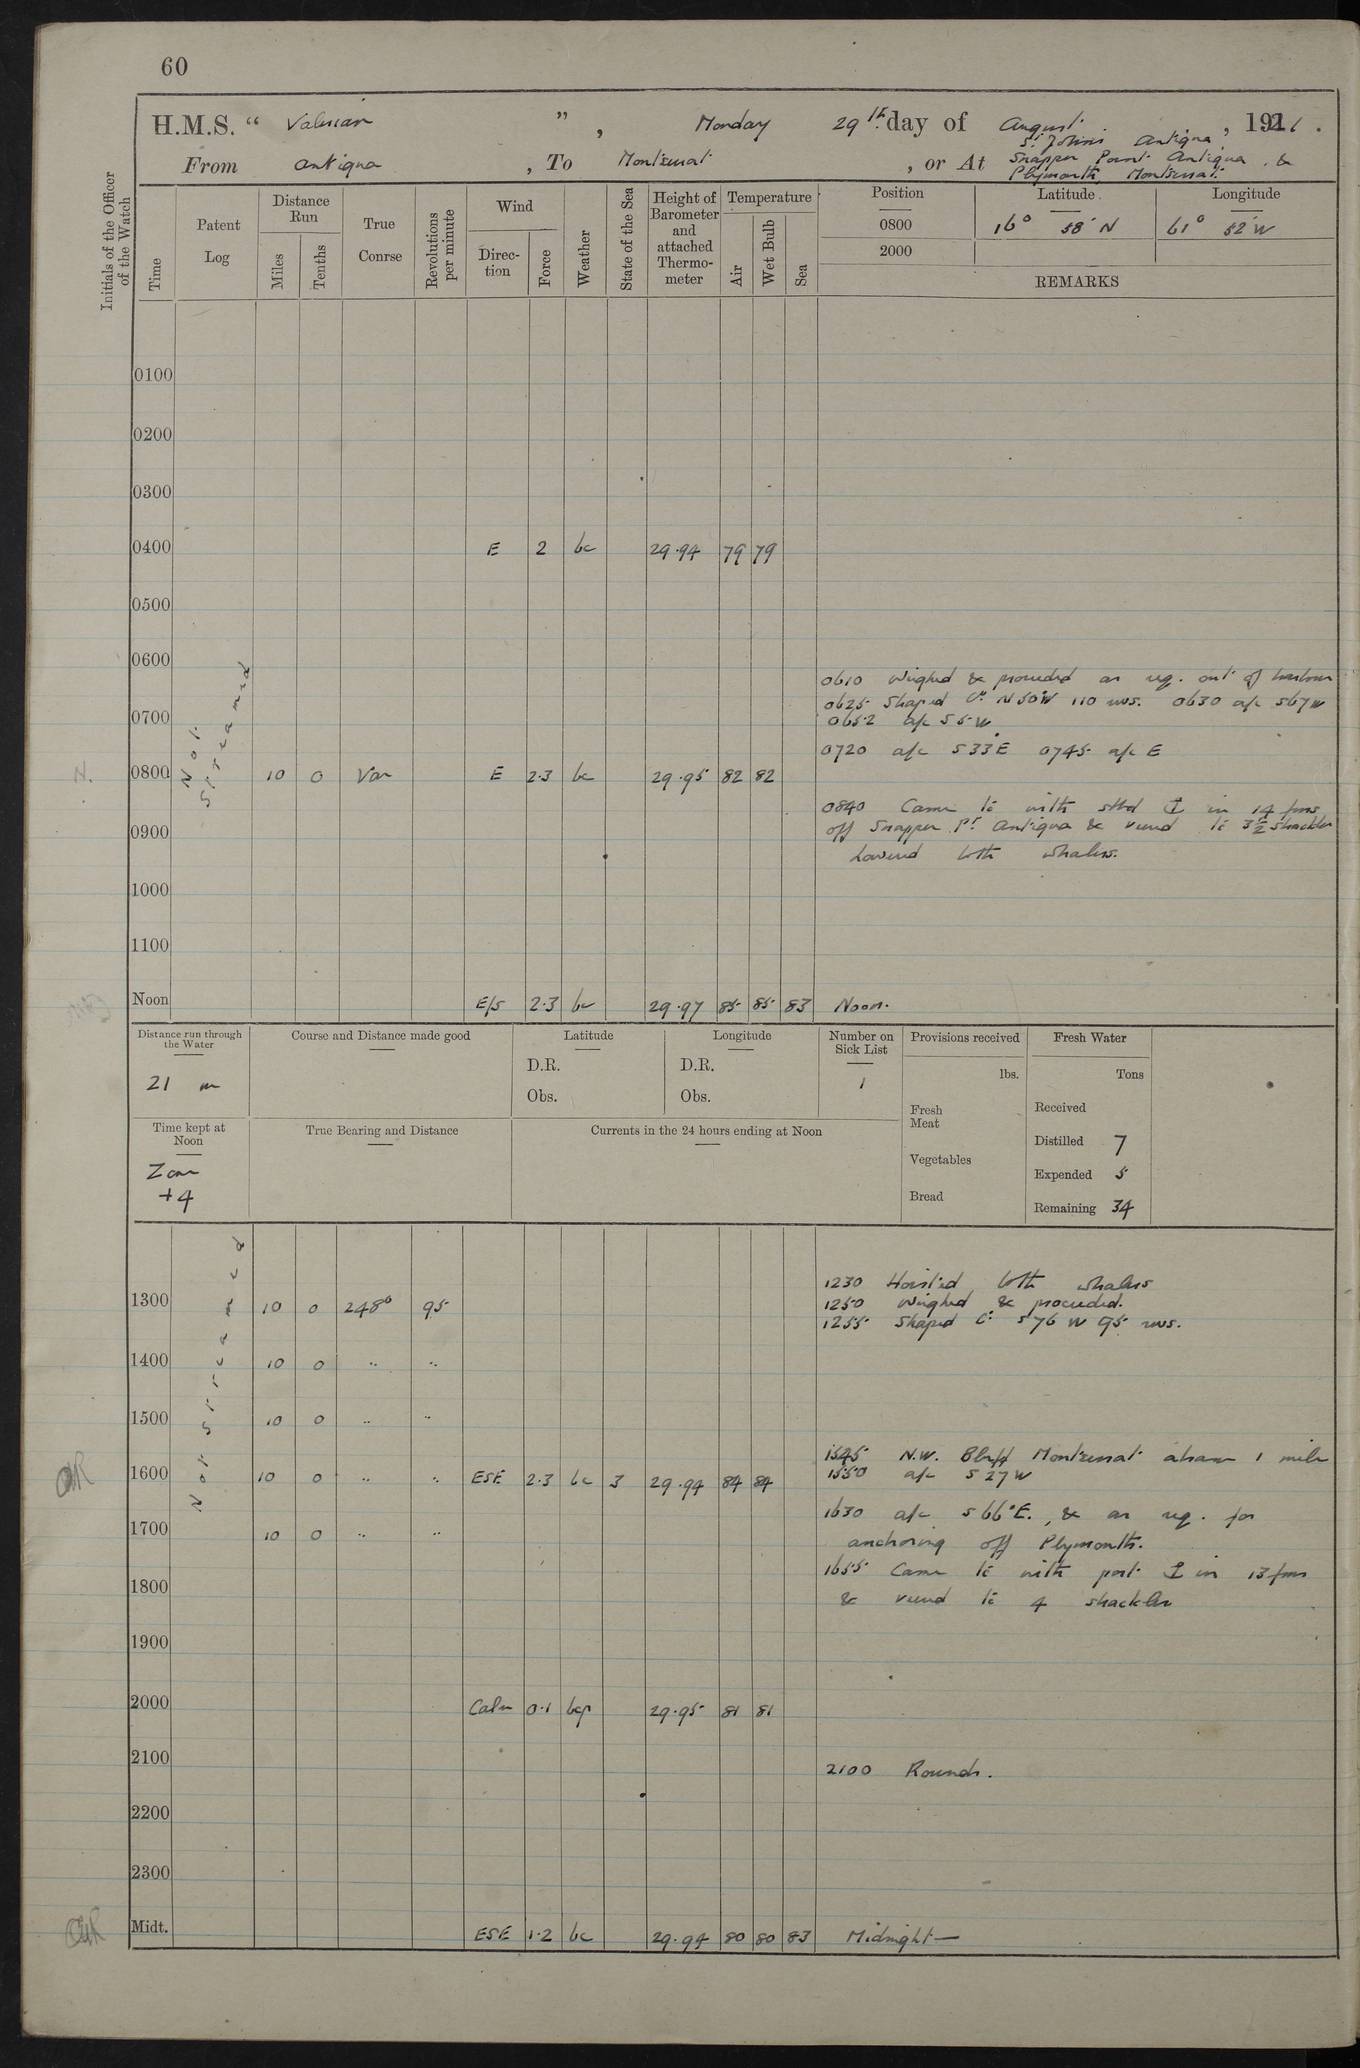 60
H.M.S. “ Valerian ” , Monday 29th day of August , 1921 .
From Antigua , To Montserrat , or At St Johns Antigua, Snapper Point Antigua & Plymouth, Montserrat
Initials of the Officer of the Watch
Time
Patent Log
Distance Run
Miles
Tenths
True Conrse
Revolutions per minute
Wind
Direction
Force
Weather
State of the Sea
Height of Barometer and attached Thermometer
Temperature
Air
Wet Bulb
Sea
Position Latitude Longitude
0800 16° 58' N 61° 52' W
2000
REMARKS
0100
0200
0300
0400 E 2 bc 29.94 79 79
0500
0600
0610 Weighed & proceeded as req. out of harbour
0625 Shaped Co N50W 110 revs. 0630 a/c S67W
0700
0652 a/c S5W
0720 a/c S33E 0745 a/c E
Not Streamed
N. 0800 10 0 Var E 2.3 bc 29.95 82 82
0840 Came to with stbd ⚓ in 14 fms
0900 off Snapper Pt Antigua & veered to 3½ shackles
Lowered both whalers.
1000
1100
Noon E/S 2.3 bc 29.97 85 85 83 Noon.
Distance run through the Water
21 m
Course and Distance made good
Latitude
D.R.
Obs.
Longitude
D.R.
Obs.
Number on Sick List
1
Provisions received
lbs.
Fresh Meat
Vegetables
Bread
Fresh Water
Tons
Received
Distilled 7
Expended 5
Remaining 34
Time kept at Noon
Zone
+4
True Bearing and Distance
Currents in the 24 hours ending at Noon
Not Streamed
1230 Hoisted both whalers
1300 10 0 248° 95 1250 Weighed & proceeded.
1255 Shaped Co S76W 95 revs.
1400 10 0 " "
1500 10 0 " "
1545 N.W. Bluff Montserrat abeam 1 mile
1600 10 0 " " ESE 2.3 bc 3 29.94 84 84 1550 a/c S27W
1630 a/c S66°E. & as req. for
1700 10 0 " "
anchoring off Plymouth.
1655 Came to with port ⚓ in 13 fms
1800
& veered to 4 shackles
1900
2000 Calm 0.1 bcp 29.95 81 81
2100 2100 Rounds.
2200
2300
Midt. ESE 1.2 bc 29.94 80 80 83 Midnight—